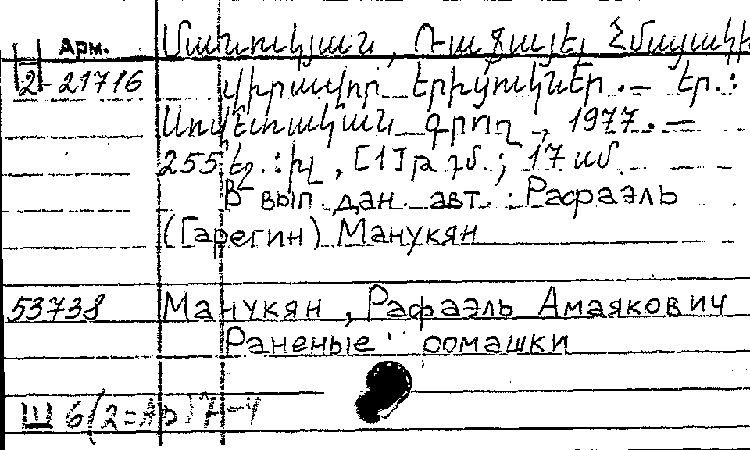 Арм. Մանուկյան, Ռաֆայել Հմայակի
2-21716 Վիրավոր երիցուկներ. — Եր.:
Սովետական գրող, 1977. —
255 էջ.:իլ, [1]թ դմ.; 17 սմ.
В вып. дан. авт.: Рафаэль
(Гарегин) Манукян
53738 Манукян, Рафаэль Амаякович
Раненые ромашки
Ш 6(2=Ар)7-4